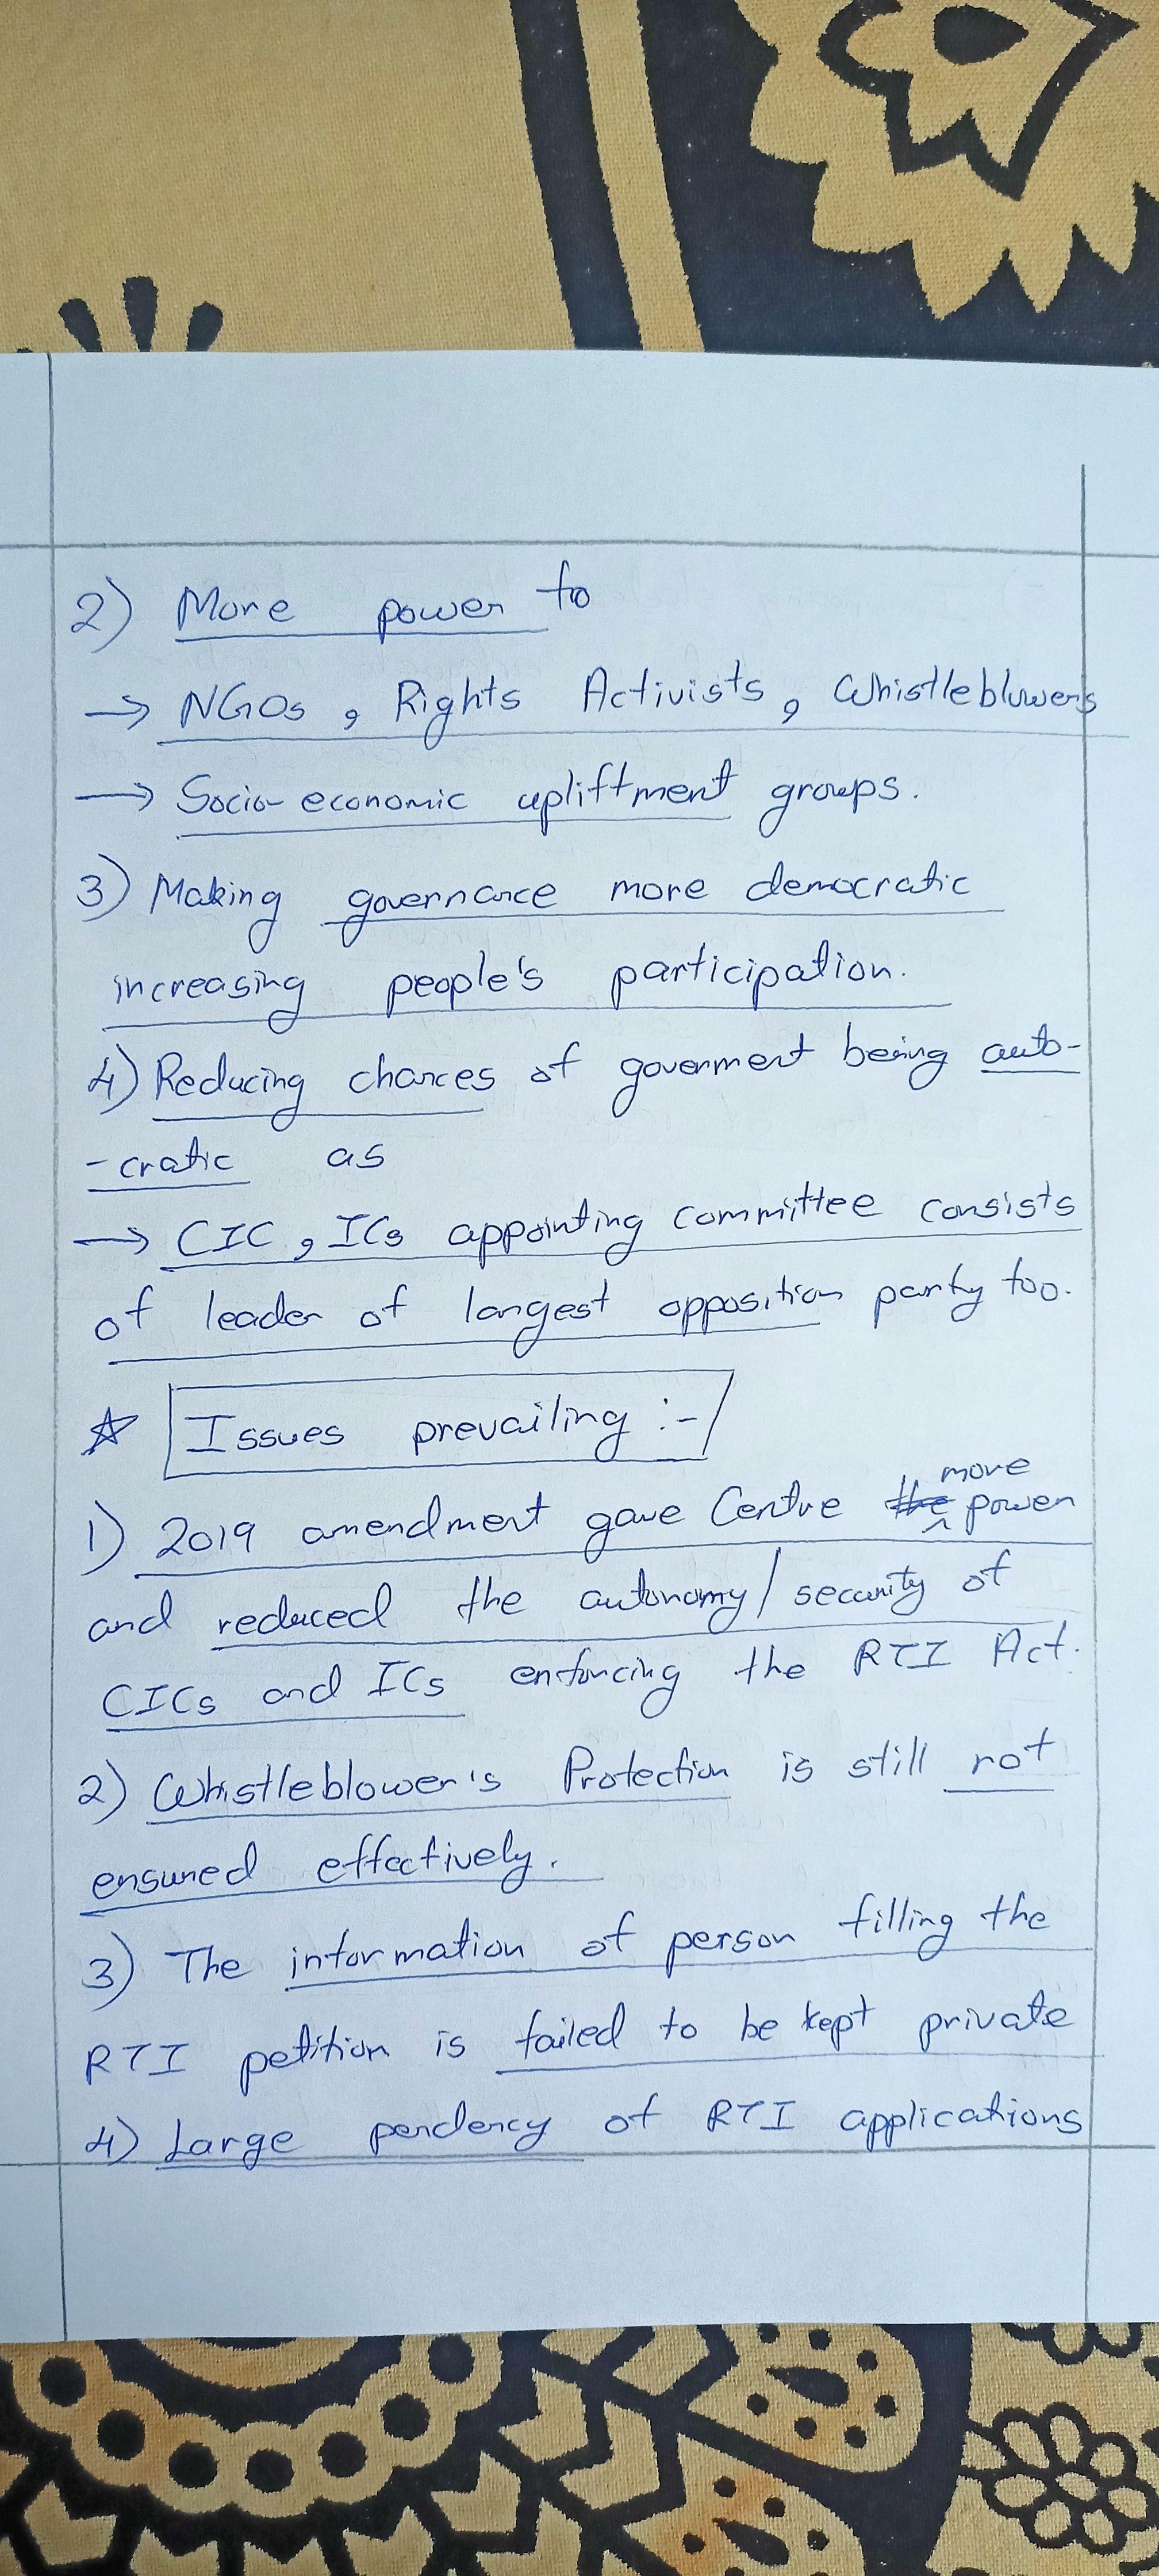 2) More power to
→ NGOs, Rights Activists, Whistleblowers
→ Socio-economic upliftment groups.
3) Making governance more democratic
increasing people's participation.
4) Reducing chances of goverment being auto-
-cratic as
→ CIC, ICs appointing committee consists
of leader of largest opposition party too.
☆ Issues prevailing :-
1) 2019 amendment gave Centre the more power
and reduced the autonomy/security of
CICs and ICs enforcing the RTI Act.
2) Whistleblower's Protection is still not
ensured effectively.
3) The information of person filling the
RTI petition is failed to be kept private
4) Large pendency of RTI applications